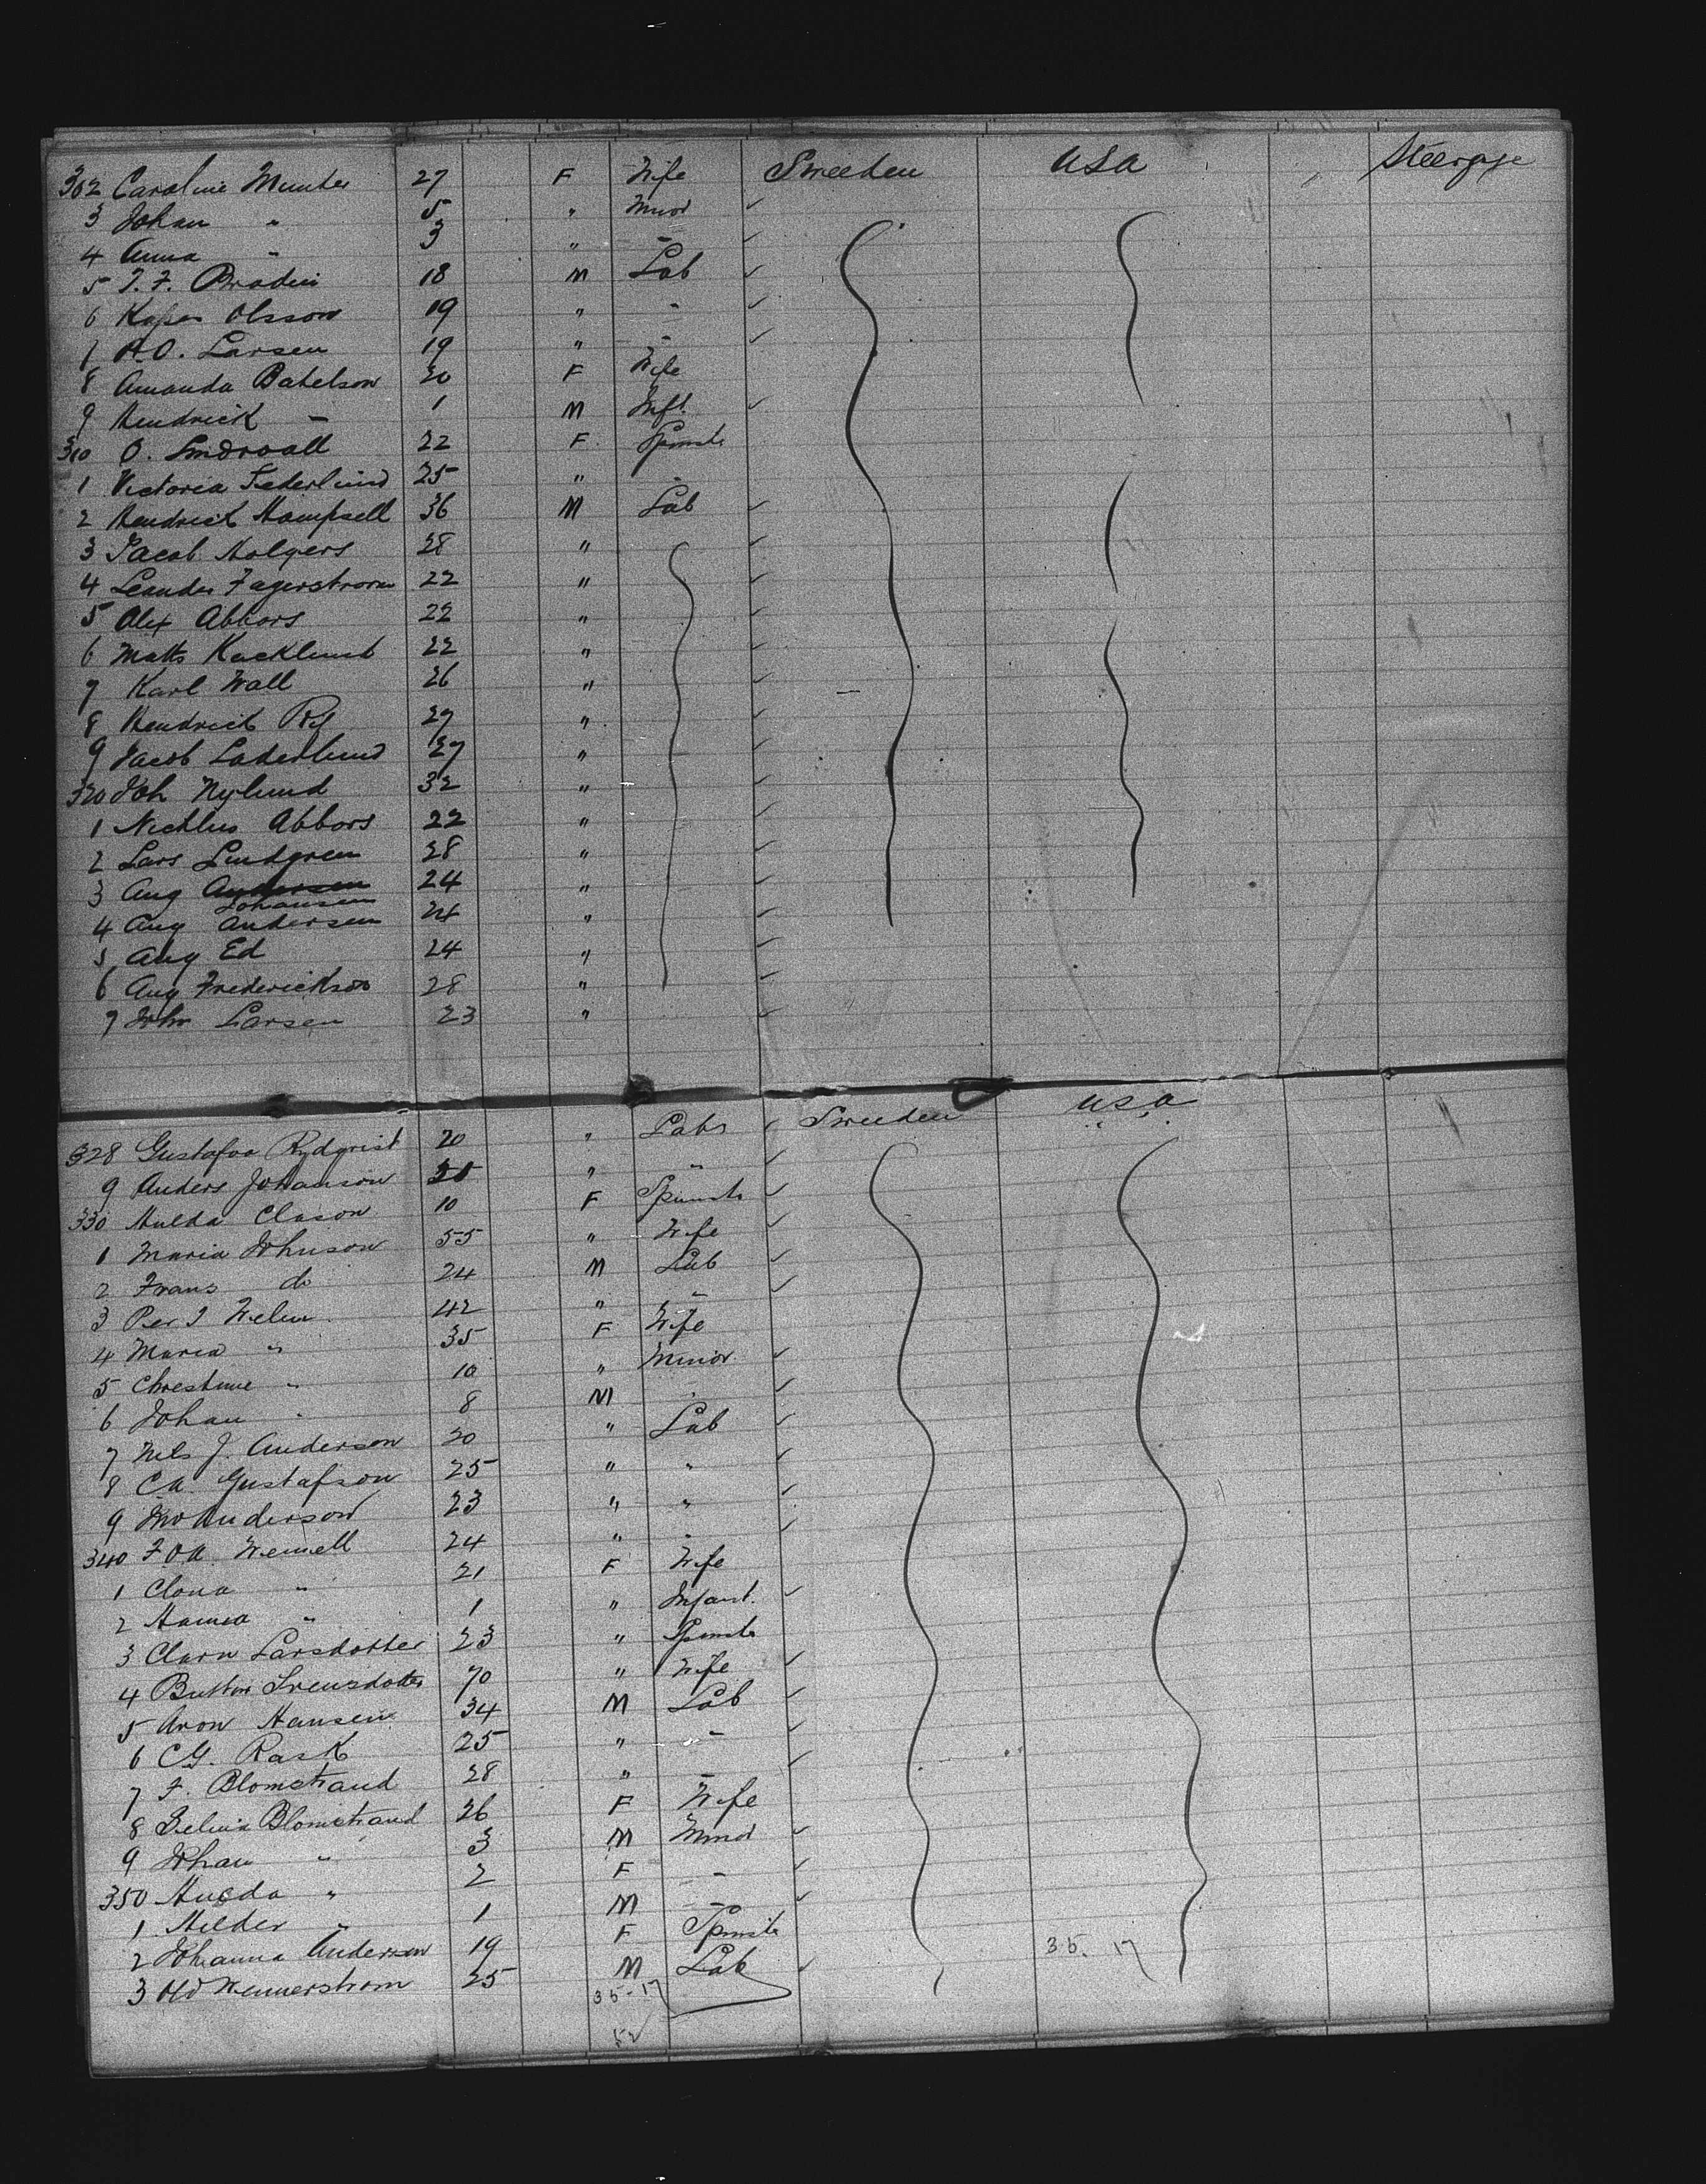 302 Caroline Munter 27 F Wife Sweeden USA Steerage
3 Johan " 5 " Minor
4 Anna " 3 " -
5 T. F. Brodin 18 M Lab
6 Olsson 19 " -
7 A.O. Larsen 19 " -
8 Amanda Batelson 30 F Wife
9 Hendrick - 1 M Inft.
310 O. Lindroall 22 F Spinste
1 Victoria Federlund 25 " -
2 Hendrick Hampsell 36 M Lab
3 Jacob Holgers 28 "
4 Leander Fagerstrom 22 "
5 Alex Abbors 22 "
6 Matts Kecklund 22 "
7 Karl Wall 26 "
8 Hendrick 27 "
9 Jacob Laderlund 27 "
320 Joh Nylund 32 "
1 Nichlus Abbors 22 "
2 Lars Lindgren 28 "
3 Aug Andersen 24 "
Johansen
4 Aug Andersen 24 "
5 Aug Ed 24 "
6 Aug Frederickson 28 "
7 John Larsen 23 "
328 Gustafva Rydqrist 20 " Labr Sweeden USA
9 Anders Johanson " "
330 Hulda Clason 10 F Spinste
1 Maria Johnson 55 " Wife
2 Frans do 24 M Lab
3 Per J Welin 42 " -
4 Maria " 35 F Wife
5 Chrestine " 10 " Minor
6 Johan " 8 M
7 Nils J. Anderson 20 " Lab
8 C.A. Gustafson 25 " "
9 Jno Anderson 23 " "
340 F.O.A. Wennell 24 " -
1 Clona " 21 F Wife
2 Hanna " 1 " Infant.
3 Clara Larsdotter 23 " Spinste
4 Svensdotter 70 " Wife
5 Aron Hansen 34 M Lab
6 C.G. Rask 25 " -
7 F. Blomstrand 28 " -
8 Selma Blomstrand 26 F Wife
9 Johan " 3 M Minor
350 Hulda " 2 F -
1 Hilder " 1 M -
2 Johanna Andersen 19 F Spinste 35. 17
3 Old Wennerstrom 25 M Lab
35-17
52